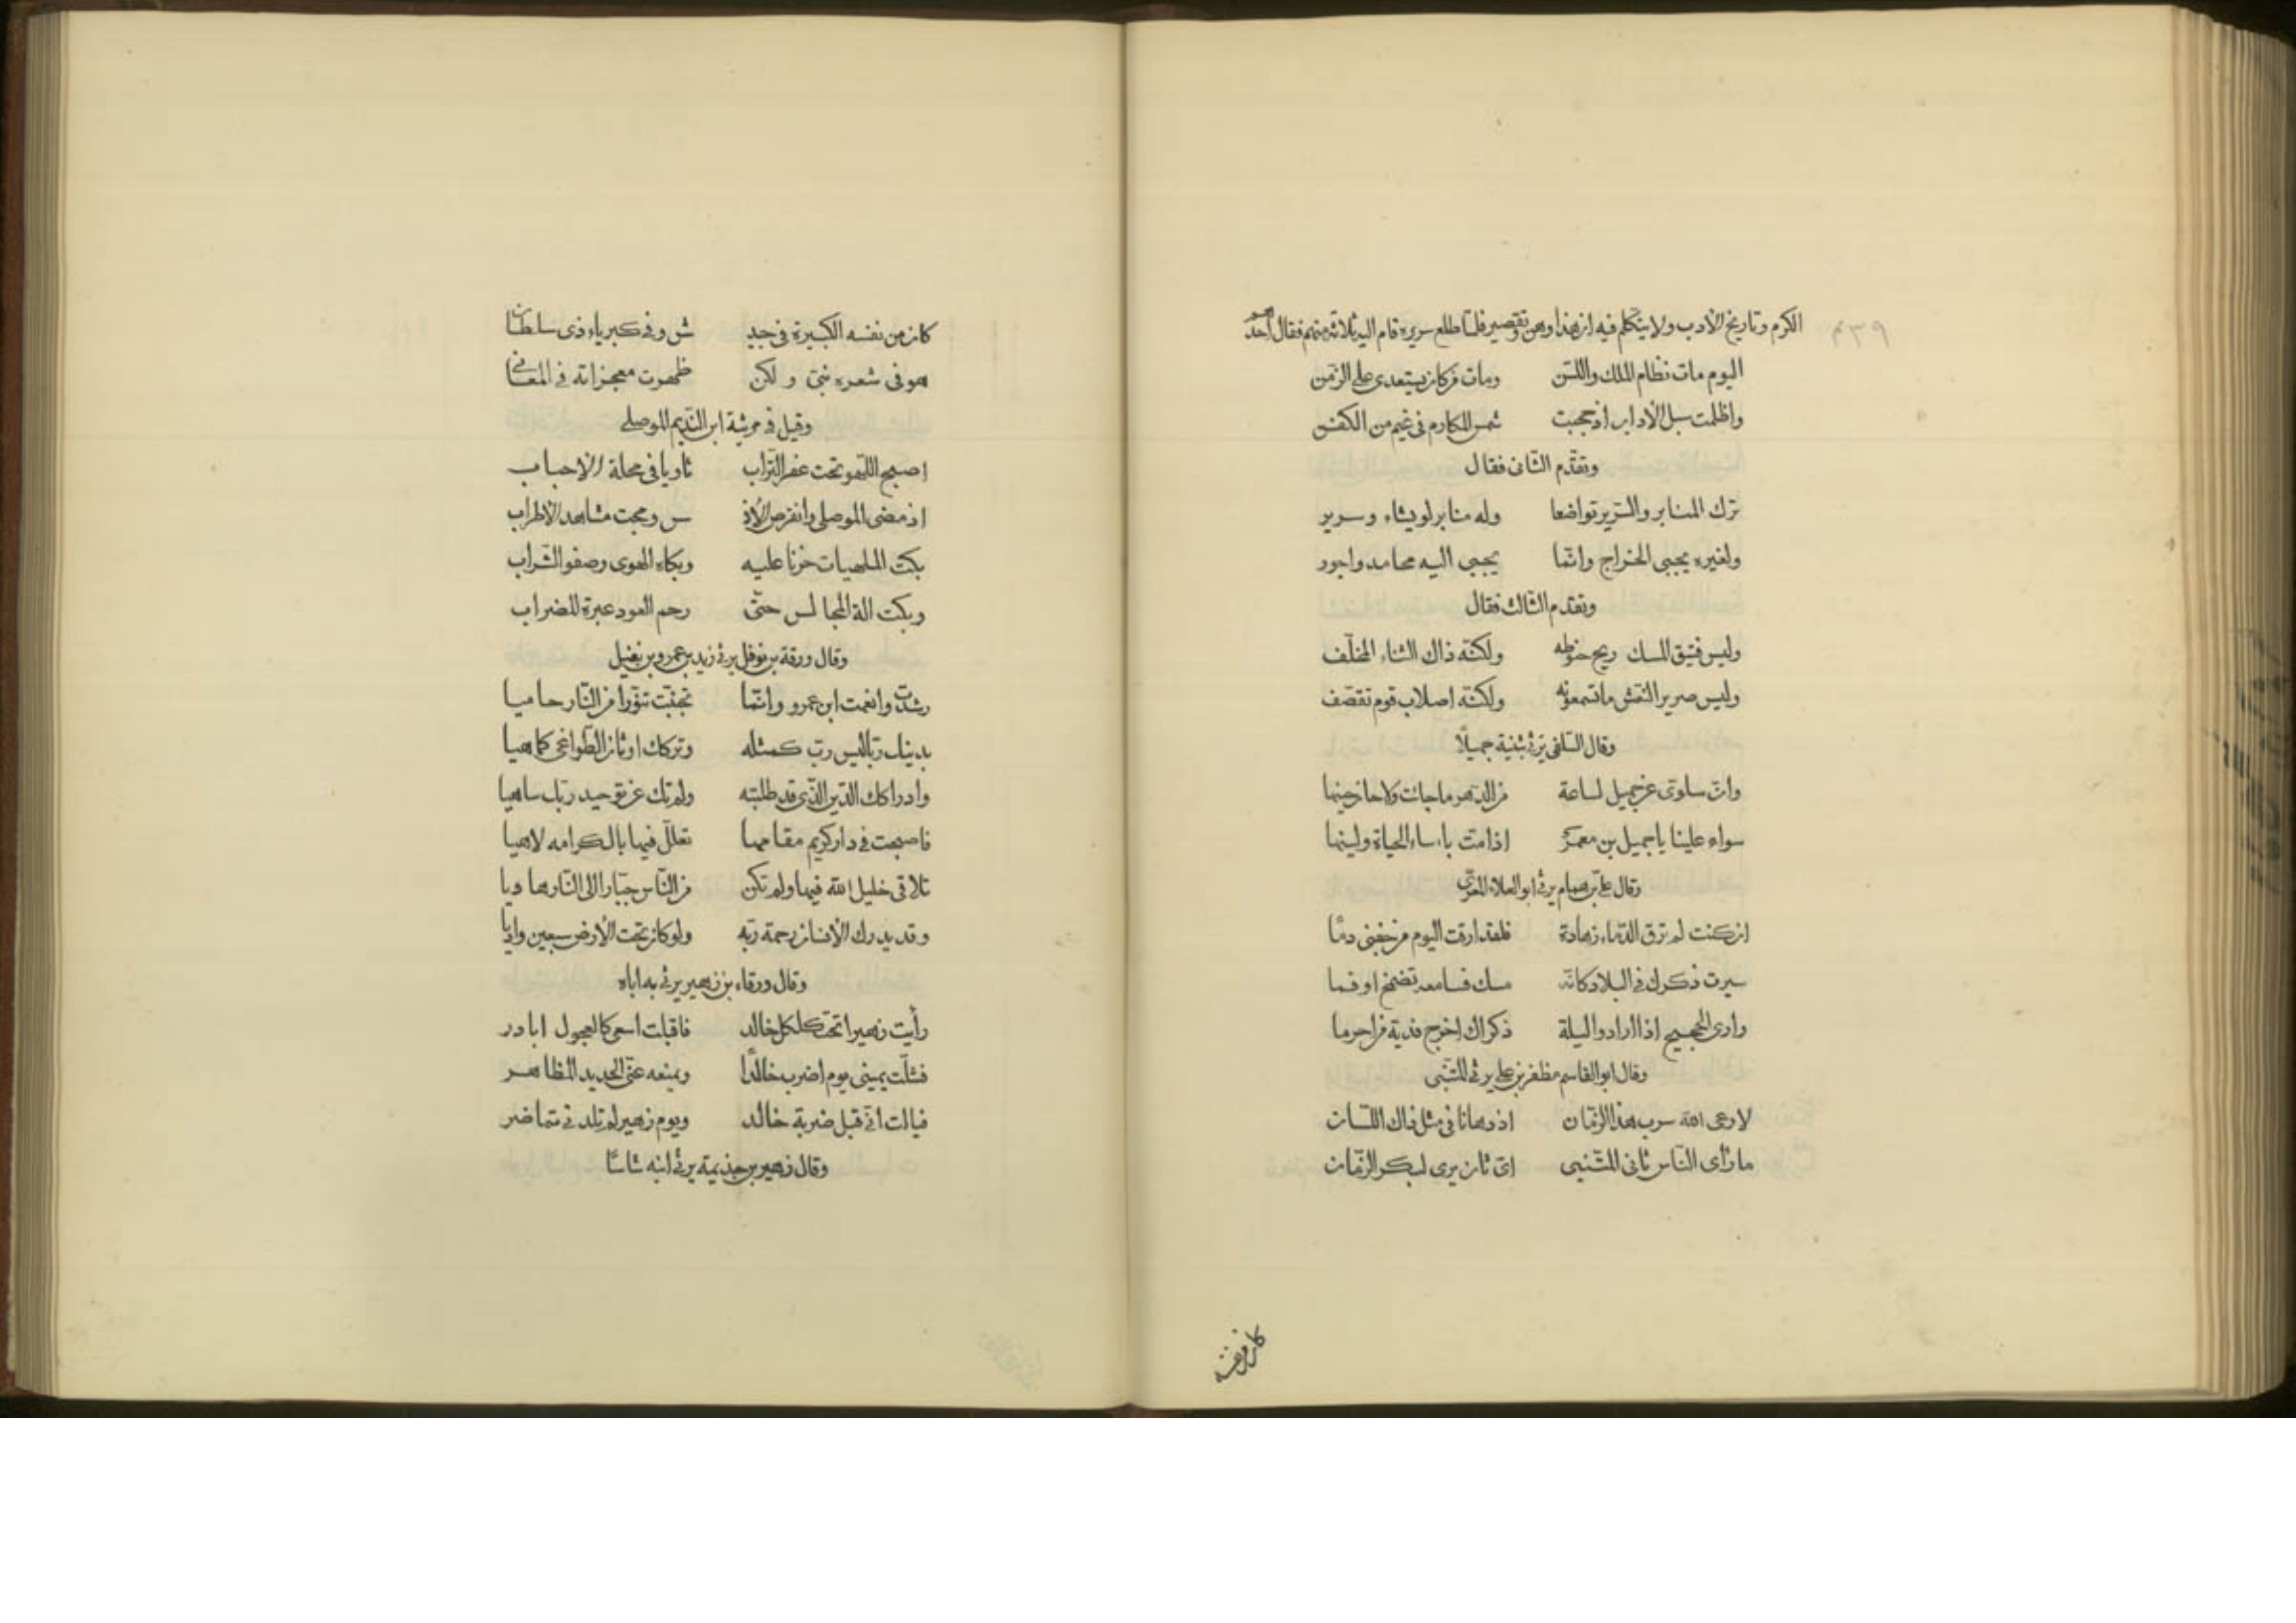 الكرم وتاريخ الأدب ولا يتكلم فيه ان هذا وهن وتقصير فلما طلع سريره قام اليه ثلاثة منهم فقال احدهم
٤٣٩
اليوم مات نظام الملك واللسن ومات من كان يستعدى على الزمن
واظلمت سبل الآداب اذ حجبت شمس المكارم فى غيم من الكفن
وتقدّم الثّانى فقال
ترك المنابر والسّرير تواضعا وله منابر لو يشاء وسرير
ولغيره يجبى الخراج وانّما يجبى اليه محامد واجور
وتقدّم الثّالث فقال
وليس فتيق المسك ريح حنوطه ولكنّه ذاك الثناء المخلّف
وليس صرير النّعش ما تسمعونه ولكنّه اصلاب قوم تقصّف
وقال السّلفى يرثى بثينة جميلًا
وانّ سلوّى عن جميل لساعة من الدّهر ما جاءت ولا حان حينها
سواء علينا يا جميل بن معمر اذا متّ بأساء الحياة ولينها
وقال علىّ بن همام يرثى ابو العلاء المعرّى
ان كنت لم ترق الدّماء زهادة فلقد ارقت اليوم من جفنى دمًا
سيرت ذكرك فى البلاد كانّه مسك فسامعه تضمخ او فما
وارى الحجيج اذا ارادوا ليلة ذكراك اخرج فدية من احرما
وقال ابو القاسم مظفر بن على يرثى المتنبّى
لا رعى الله سرب هذا الزّمان اذ دهانا فى مثل ذاك اللّسان
ما رأى النّاس ثانى المتنبى اىّ ثان يرى لبكر الزّمان
كان من نفسه
كان من نفسه الكبيرة فى جيـ ـش وفى كبرياء ذى سلطان
هو فى شعره نبىّ ولكن ظهرت معجزاته فى المعانى
وقيل فى مرثية ابن النّديم الموصلى
اصبح اللّهو تحت عفر التّراب ثاويا فى محلة الأحباب
اذ مضى الموصلى وانقرض الأنـ ـس ومجت مشاهد الأطراب
بكت الملهيات حزنا عليه وبكاه الهوى وصفو الشّراب
وبكت الة المجالس حتّى رحم العود عبرة المضراب
وقال ورقة بن نوفل يرثى زيد بن عمرو بن نفيل
رشدت وانعمت ابن عمرو وانّما تجنّبت تنوّرا من النّار حاميا
بدينك ربّا ليس ربّ كمثله وتركك اوثان الطّواغى كما هيا
وادراكك الدّين الّذى قد طلبته ولم تك عن توحيد ربّك ساهيا
فاصبحت فى دار كريم مقامها تعلّل فيها بالكرامه لاهيا
تلاقى خليل الله فيها ولم تكن من النّاس جبّارا الى النّار هاويا
وقد يدرك الأنسان رحمة ربّه ولو كان تحت الأرض سبعين واديا
وقال ورقاء بن زهير يرثى به اباه
رأيت زهيرا تحت كلكل خالد فاقبلت اسعى كالعجول ابادر
فشلّت يمينى يوم اضرب خالدًا ويمنعه عنّى الحديد المظاهر
فيا ليت انّى قبل ضربة خالد ويوم زهير لم تلدنى تماضر
وقال زهير بن جذيمة يرثى ابنه شاسًا